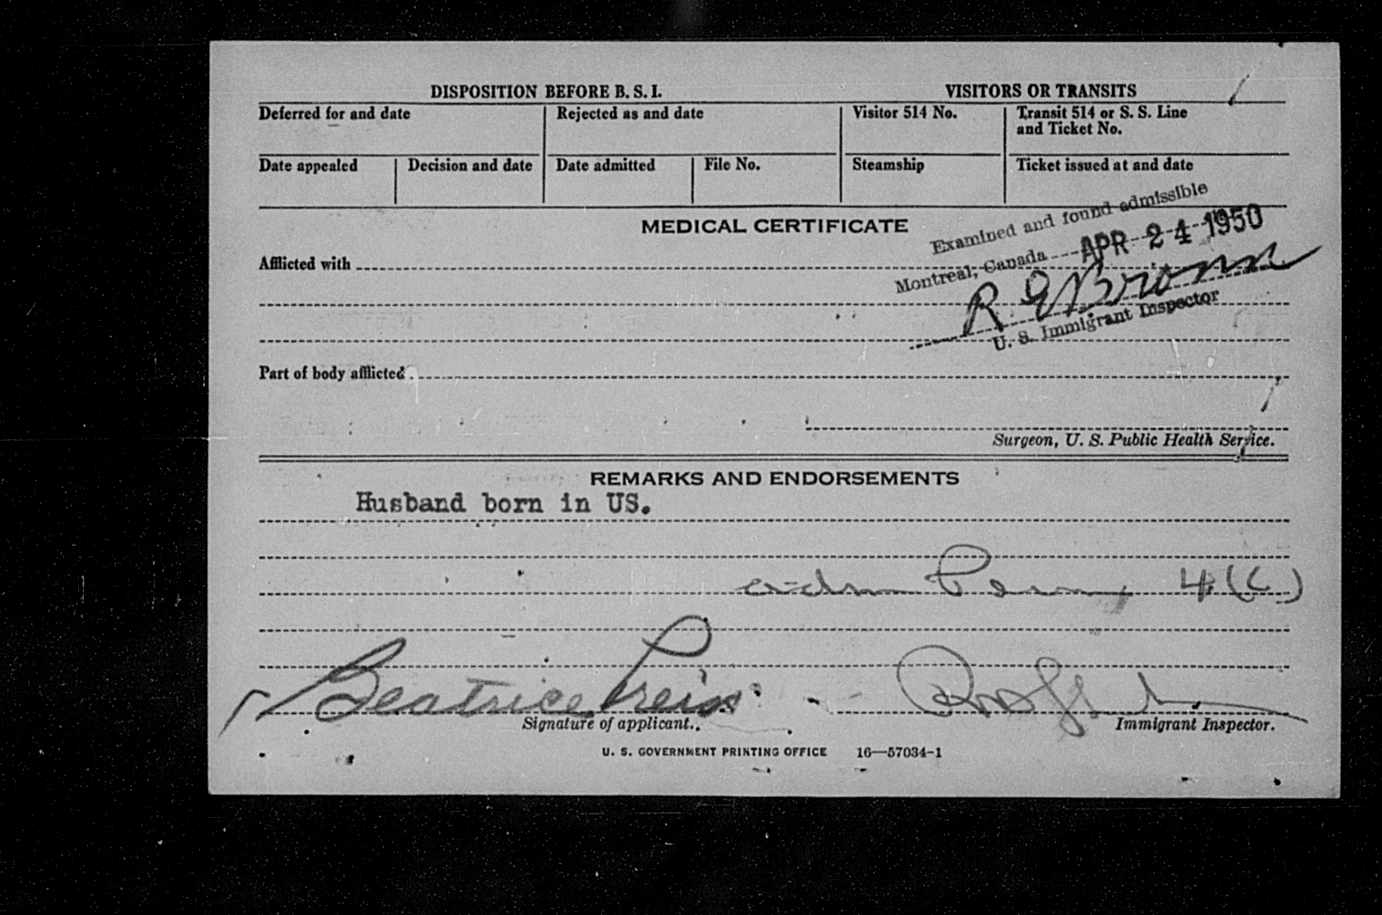 DISPOSITION BEFORE B. S. I.
VISITORS OR TRANSITS
Deferred for and date
Rejected as and date
Visitor 514 No.
Transit 514 or S. S. Line
and Ticket No.
Date appealed
Decision and date
Date admitted
File No.
Steamship
Ticket issued at and date
MEDICAL CERTIFICATE
Examined and found admissible
Montreal, Canada APR 24 1950
R E Brown
U. S. Immigrant Inspector
Afflicted with
Part of body afflicted
Surgeon, U. S. Public Health Service.
REMARKS AND ENDORSEMENTS
Husband born in US.
adm 4(C)
Beatrice Preiss
Signature of applicant.
Immigrant Inspector.
U. S. GOVERNMENT PRINTING OFFICE 16—57034-1